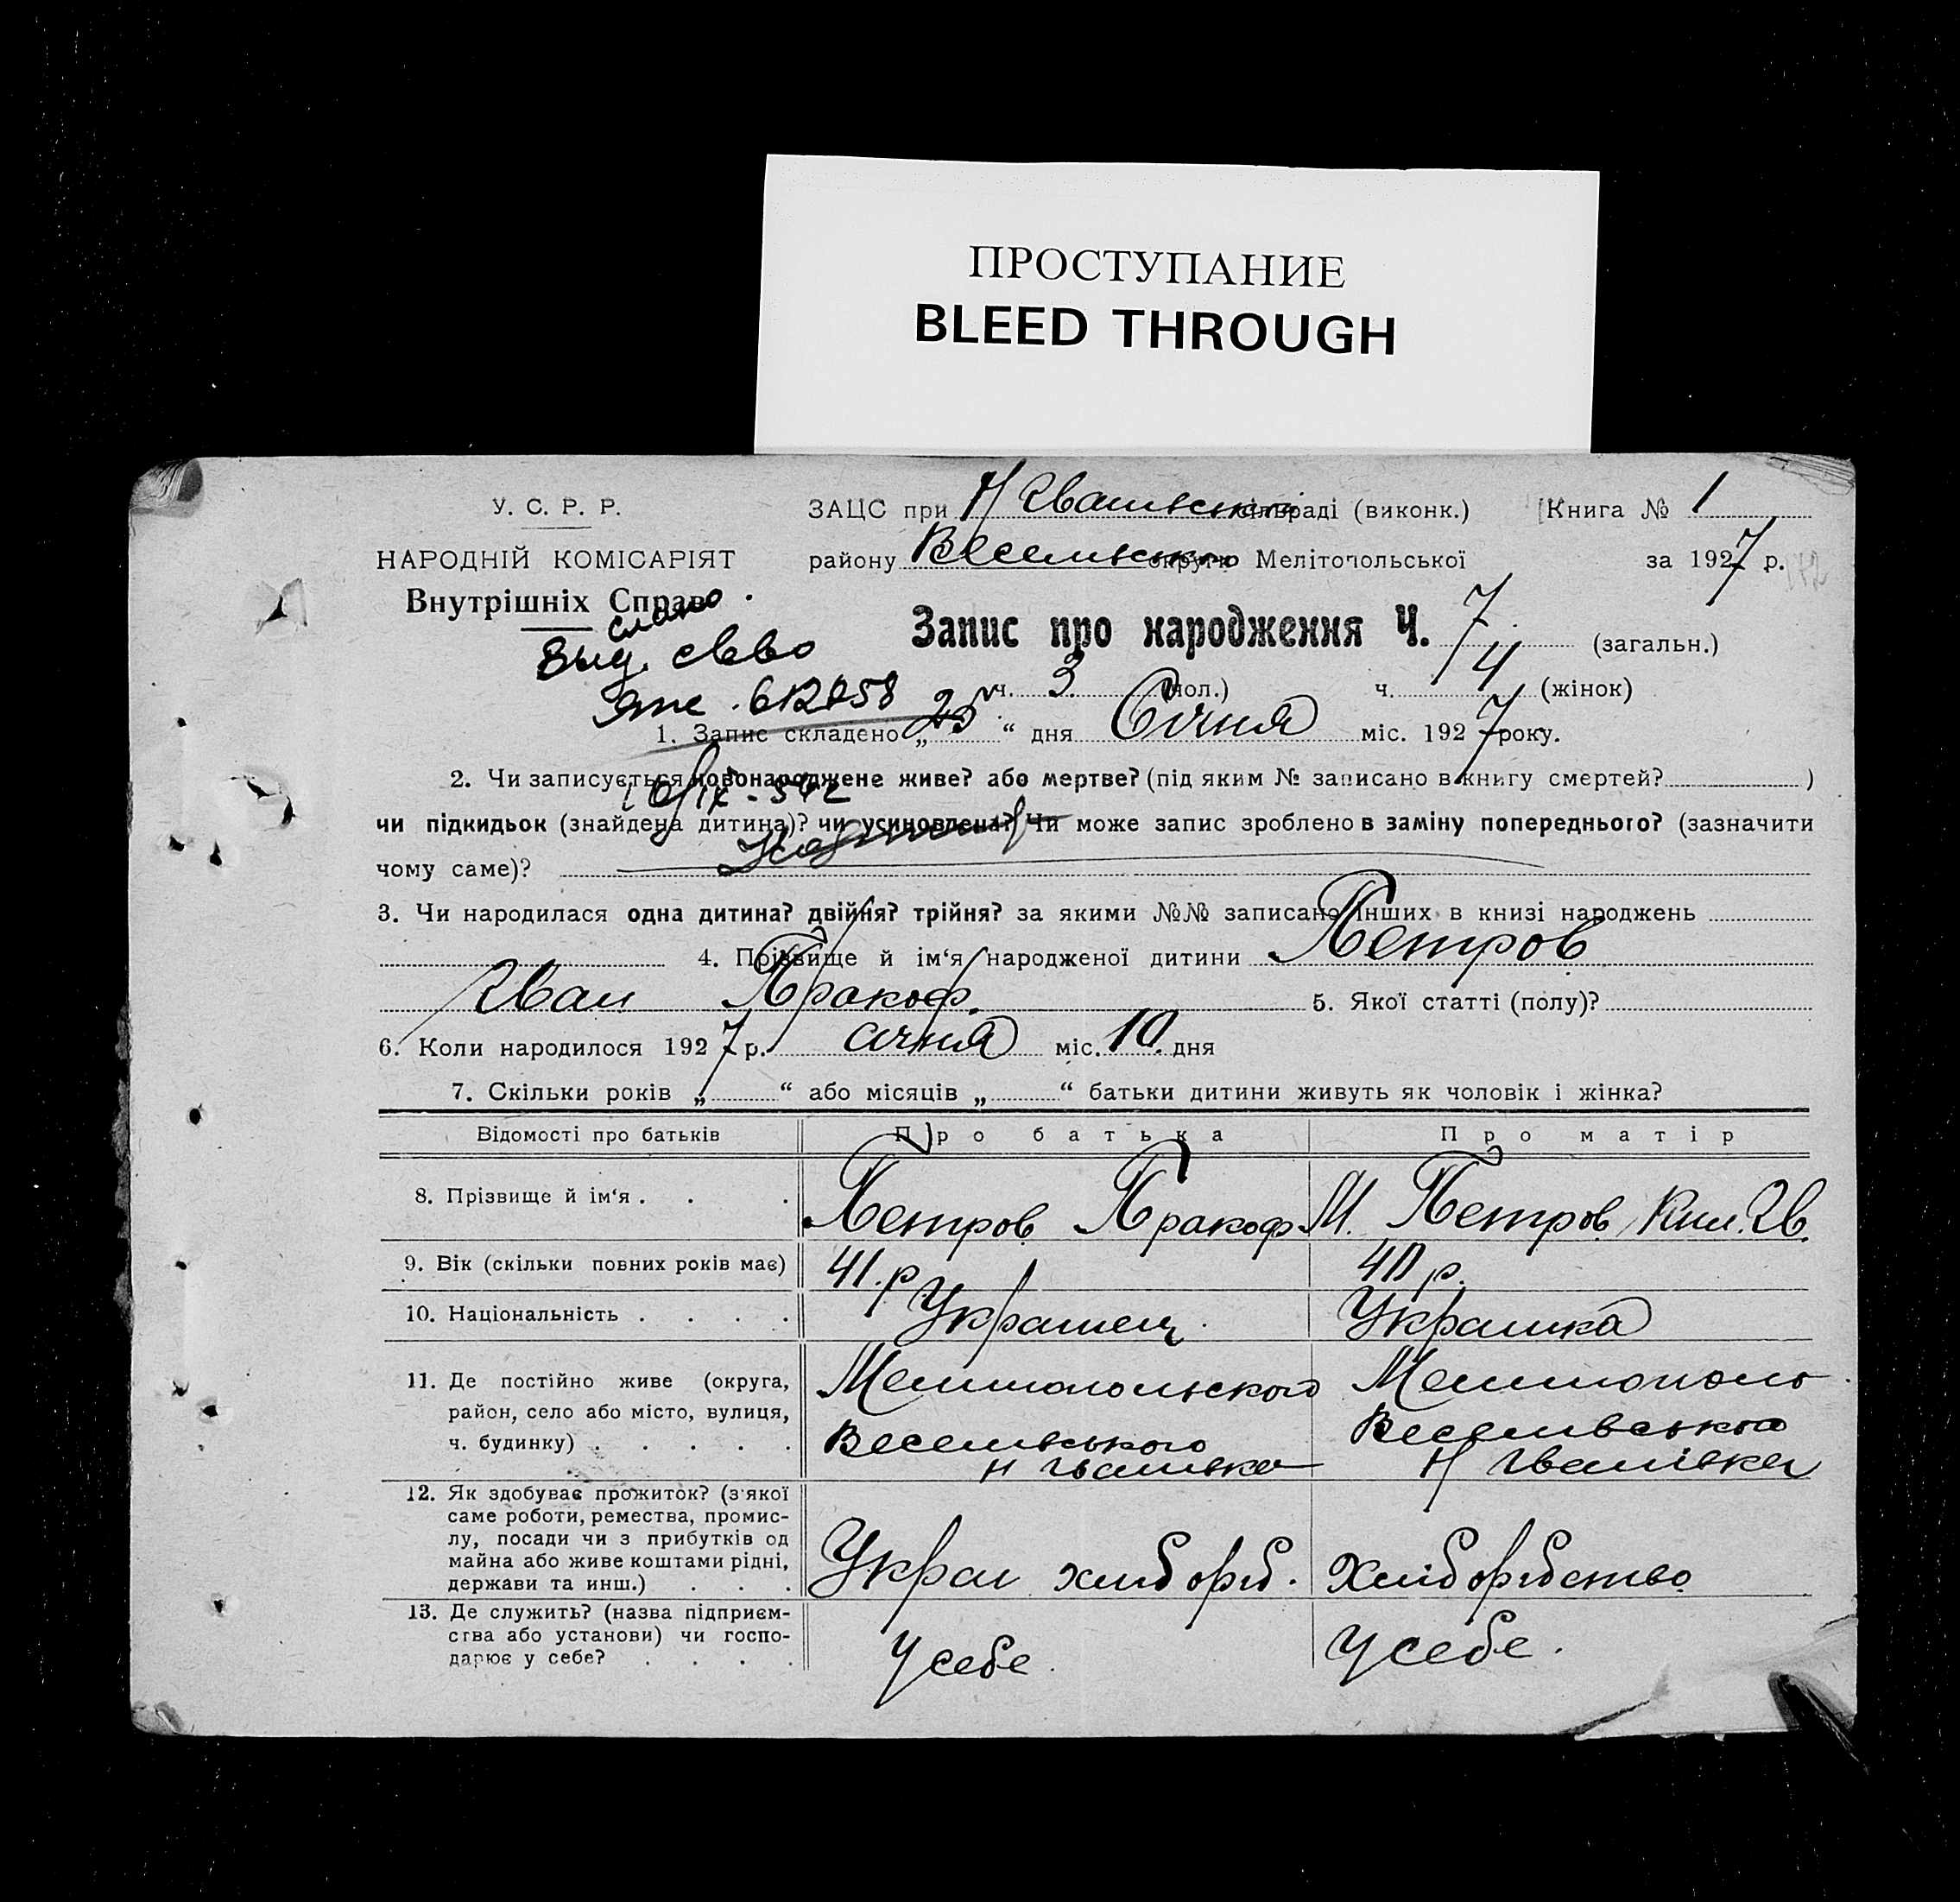 ПРОСТУПАНИЕ
BLEED THROUGH
У. С. Р. Р.
ЗАЦС при Н Іванівській сільраді (виконк.) Книга № 1
НАРОДНІЙ КОМІСАРІЯТ
району Веселівського округи Мелітопольської за 1927 р.
Внутрішніх Справ
Запис про народження Ч. 7 (загальн.)
Выд. св-во
ч. 3 (чол.) ч. 4 (жінок)
1. Запис складено „ 25 “ дня Січня міс. 1927 року.
2. Чи записується новонароджене живе? або мертве? (під яким № записано в книгу смертей? )
чи підкидьок (знайдена дитина)? чи усиновлена? Чи може запис зроблено в заміну попереднього? (зазначити
чому саме)?
3. Чи народилася одна дитина? двійня? трійня? за якими №№ записано інших в книзі народжень
4. Прізвище й ім‘я народженої дитини Петров
Иван Пракоф. 5. Якої статті (полу)?
6. Коли народилося 1927 р. січня міс. 10 дня
7. Скільки років „ “ або місяців „ “ батьки дитини живуть як чоловік і жінка?
Відомості про батьків Про батька Про матір
8. Прізвище й ім‘я . . . Петров Пракоф М. Петров Кил. Ив.
9. Вік (скільки повних років має) 41. р 40 р.
10. Національність . . . . Украинец. Украинка
11. Де постійно живе (округа, Мелитопольского Мелитополь
район, село або місто, вулиця,
ч. будинку) . . . . . Веселивського Веселивського
Н Іванивка Н Іванівка
12. Як здобуває прожиток? (з якої
саме роботи, ремества, промис-
лу, посади чи з прибутків од
майна або живе коштами рідні,
держави та инш.) . . . хлібороб. Хліборобство
13. Де служить? (назва підприєм-
ства або установи) чи госпо-
дарює у себе? . . . . У себе. У себе.